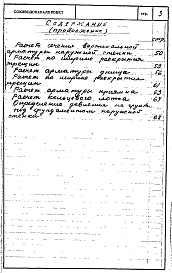 СОЮЗВОДОКАНАЛПРОЕКТ стр. 3
СОДЕРЖАНИЕ
(продолжение)
стр.
Расчет сечения вертикальной
арматуры наружной стенки 50
Расчет по ширине раскрытия
трещин 53
Расчет арматуры днища 56
Расчет по ширине раскрытия
трещин 61
Расчет арматуры приямка 63
Расчет кольцевого лотка 64
Определение давления на грунт
под фундаментом наружной
стенки 68